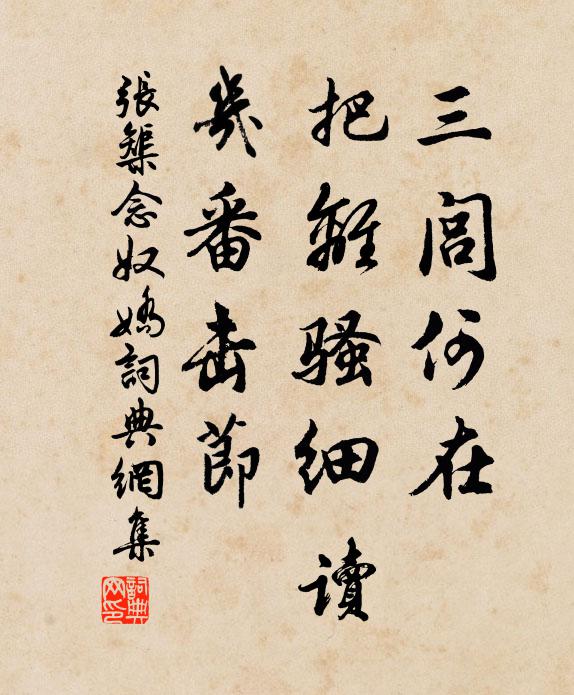 三閭何在
把離騷細讀
幾番击節
張榘念奴嬌詞典網集
詞典網印